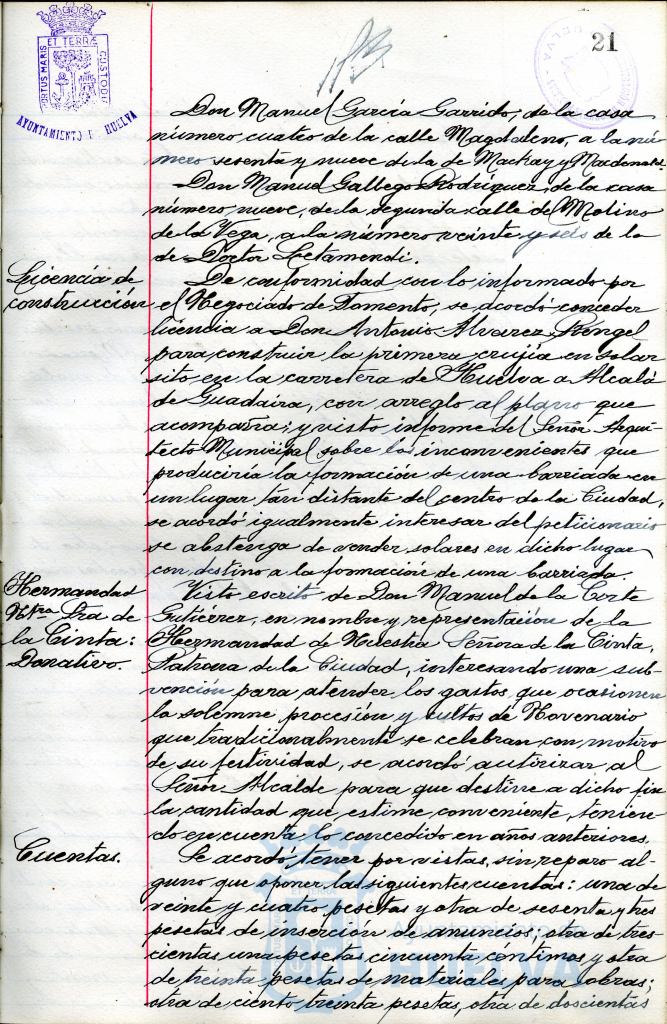 21
PORTUS MARIS ET TERRÆ CUSTODIA
AYUNTAMIENTO DE HUELVA
Don Manuel García Garrido, de la casa
número cuatro de la calle Magdalena, a la nú-
mero sesenta y nueve de la de Mackay y Macdonald.
Don Manuel Gallego Rodríguez, de la casa
número nueve, de la segunda calle de Molino
de la Vega, a la número veinte y seis de la
de Doctor Letamendi.
Licencia de
construcción
De conformidad con lo informado por
el Negociado de Fomento, se acordó conceder
licencia a Don Antonio Alvarez Rengel
para construir la primera crujía en solar
sito en la carretera de Huelva a Alcalá
de Guadaira, con arreglo al plano que
acompaña; y visto informe del Señor Arqui-
tecto Municipal sobre los inconvenientes que
produciría la formación de una barriada en
un lugar tan distante del centro de la Ciudad,
se acordó igualmente interesar del peticionario
se abstenga de vender solares en dicho lugar
con destino a la formación de una barriada.
Hermandad
Ntra Sra de
la Cinta:
Donativo.
Visto escrito de Don Manuel de la Corte
Gutiérrez, en nombre y representación de la
Hermandad de Nuestra Señora de la Cinta,
Patrona de la Ciudad, interesando una sub-
vención para atender los gastos que ocasionen
la solemne procesión y cultos de Novenario
que tradicionalmente se celebran con motivo
de su festividad, se acordó autorizar al
Señor Alcalde para que destine a dicho fin
la cantidad que estime conveniente, tenien-
do en cuenta lo concedido en años anteriores.
Cuentas.
Se acordó tener por vistas, sin reparo al-
guno que oponer las siguientes cuentas: una de
veinte y cuatro pesetas y otra de sesenta y tres
pesetas de inserción de anuncios; otra de tres-
cientas una pesetas cincuenta céntimos y otra
de treinta pesetas de materiales para obras;
otra de ciento treinta pesetas, otra de doscientas
HUELVA